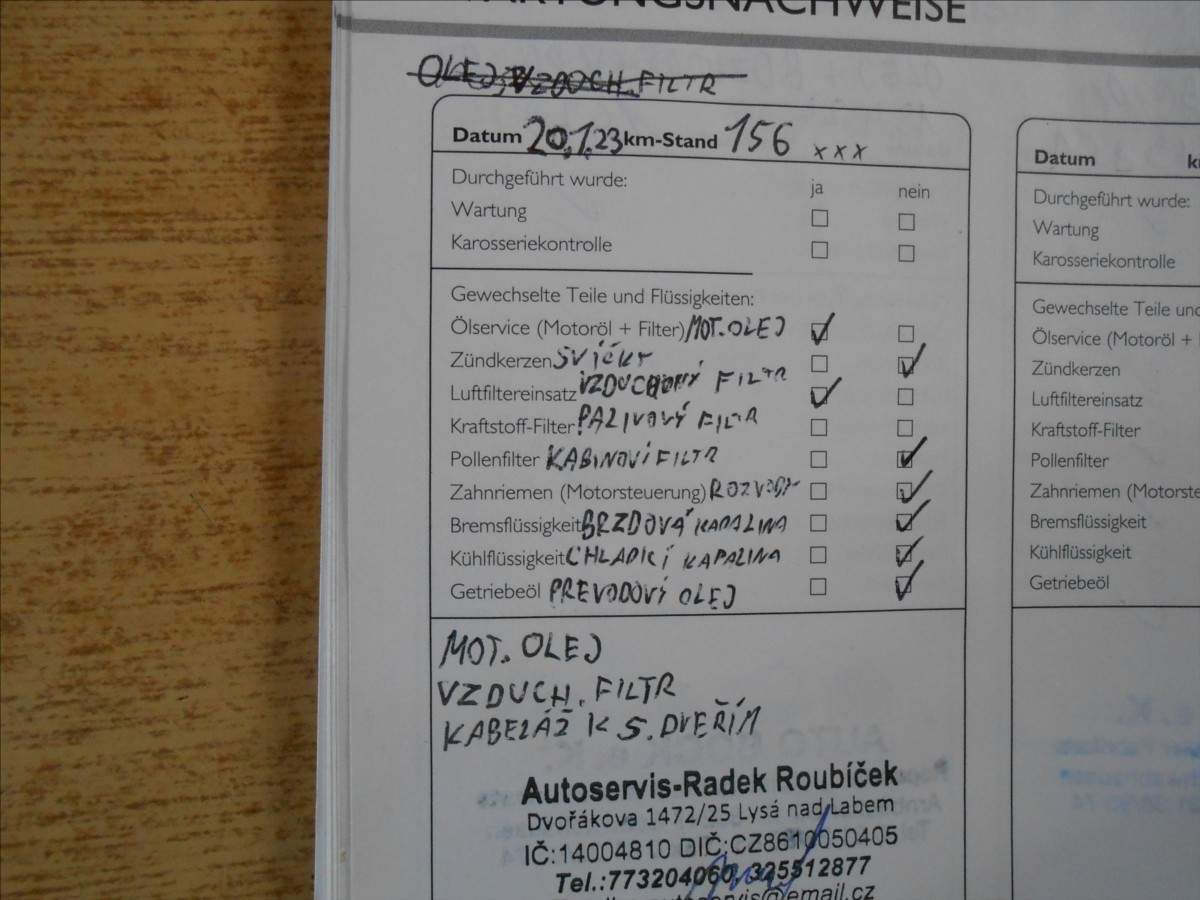 WARTUNGSNACHWEISE
OLEJ, VZDUCH. FILTR
Datum 20.1.23 km-Stand 156 xxx
Durchgeführt wurde: ja nein
Wartung
Karosseriekontrolle
Gewechselte Teile und Flüssigkeiten:
Ölservice (Motoröl + Filter) MOT. OLEJ
Zündkerzen SVÍČKY
Luftfiltereinsatz VZDUCHOVÝ FILTR
Kraftstoff-Filter PALIVOVÝ FILTR
Pollenfilter KABINOVÍ FILTR
Zahnriemen (Motorsteuerung) ROZVODY
Bremsflüssigkeit BRZDOVÁ KAPALINA
Kühlflüssigkeit CHLADICÍ KAPALINA
Getriebeöl PREVODOVÝ OLEJ
MOT. OLEJ
VZDUCH. FILTR
KABELÁŽ K S. DVEŘÍM
Autoservis-Radek Roubíček
Dvořákova 1472/25 Lysá nad Labem
IČ:14004810 DIČ:CZ8610050405
Tel.:773204060, 325512877
autoservis@email.cz
Datum
Durchgeführt wurde:
Wartung
Karosseriekontrolle
Gewechselte Teile und
Ölservice (Motoröl +
Zündkerzen
Luftfiltereinsatz
Kraftstoff-Filter
Pollenfilter
Zahnriemen (Motorste
Bremsflüssigkeit
Kühlflüssigkeit
Getriebeöl